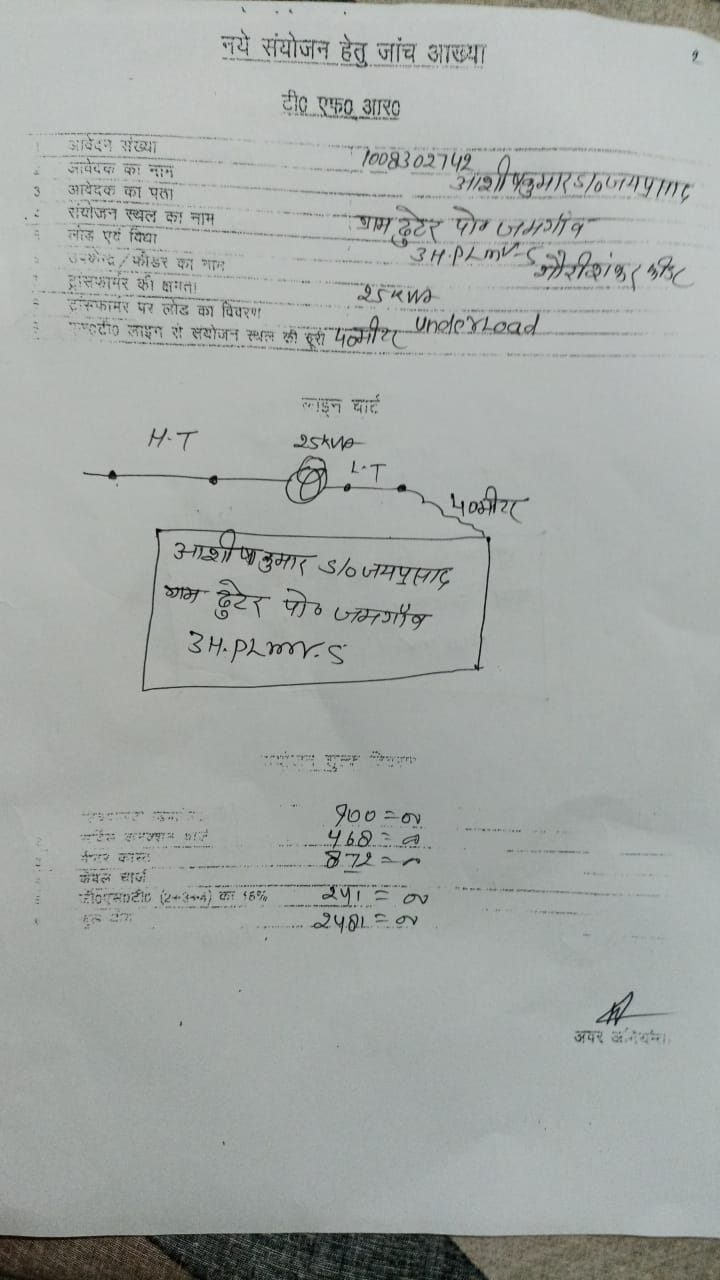 नये संयोजन हेतु जांच आख्या
टी0 एफ0 आर0
1 आवेदन संख्या 1008302742
2 आवेदक का नाम आशीषकुमार S/o जयप्रसाद
3 आवेदक का पता ग्राम ढुटेर पो० जमगाँव
संयोजन स्थल का नाम
लोड एवं विधा 3H.PLmv-5
उपकेन्द्र/फीडर का नाम गौरीशंकर फीडर
ट्रांसफार्मर की क्षमता 25KVA
ट्रांसफार्मर पर लोड का विवरण underLoad
एल0टी0 लाइन से संयोजन स्थल की दूरी 40मीटर
लाइन चार्ट
H-T 25KVA L-T 40मीटर
आशीषकुमार S/o जयप्रसाद
ग्राम ढुटेर पो० जमगाँव
3H.PLmv.5
900=00
468=00
मीटर कास्ट 872=00
केबल चार्ज
जी0एस0टी0 (2+3+4) का 18% 241=00
कुल योग 2481=00
अवर अभियन्ता